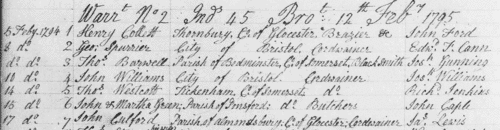 Warrt. No 2 Ind 45 Bro.t 12th Feby 1795
5 Feby. 1794 1 Henry Collett Thornbury, Co. of Glocester Brazier &c John Ford
8 do. 2 Geo. Spurrier City of Bristol Cordwainer Edwd. T. Cann
do do. 3 Thos. Barwell Parish of Bedminster, C. of Somerset, Black Smith Jos. Gunning
10 do. 4 John Williams City of Bristol Cordwainer Jos. Williams
14 do 5 Thos. Westcott Tickenham, C. of Somerset do Richd. Jenkins
15 do 6 John & Martha Green, Parish of do. Butchers John Caple
17 do. 7 John Parish of Almondsbury, C. of Glocester, Cordwainer Jas. Lewis